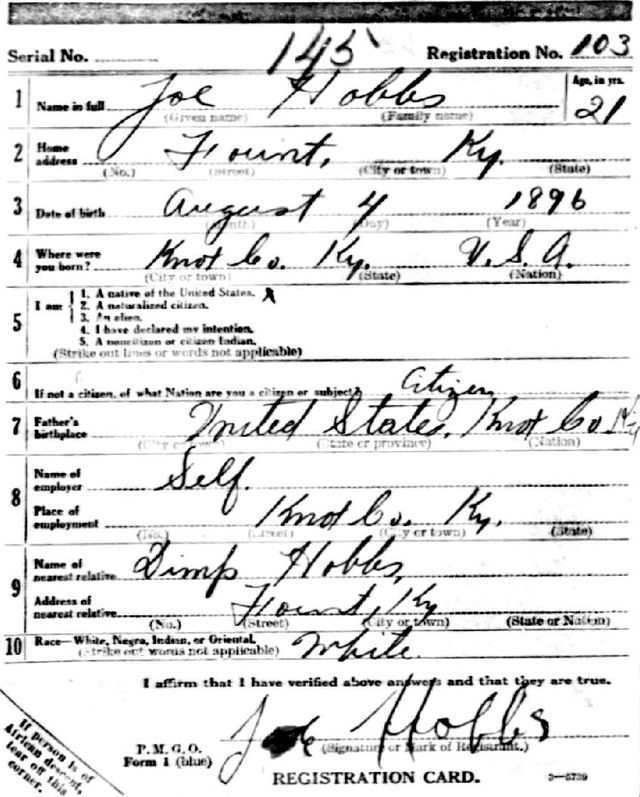 Serial No. 145 Registration No. 103
1 Name in full Joe Hobbs Age, in yrs. 21
(Given name) (Family name)
2 Home address Fount, Ky.
(No.) (Street) (City or town) (State)
3 Date of birth August 4 1896
(Month) (Day) (Year)
4 Where were you born? Knox Co. Ky. U.S.A.
(City or town) (State) (Nation)
5 I am
1. A native of the United States. x
2. A naturalized citizen.
3. An alien.
4. I have declared my intention.
5. A noncitizen or citizen Indian.
(Strike out lines or words not applicable)
6 If not a citizen, of what Nation are you a citizen or subject? Citizen
7 Father's birthplace United States, Knox Co Ky
(City or town) (State or province) (Nation)
8 Name of employer Self.
Place of employment Knox Co. Ky.
(No.) (Street) (City or town) (State)
9 Name of nearest relative Dimp Hobbs,
Address of nearest relative Fount, Ky
(No.) (Street) (City or town) (State or Nation)
10 Race—White, Negro, Indian, or Oriental. White.
(Strike out words not applicable)
I affirm that I have verified above answers and that they are true.
Joe Hobbs
(Signature or Mark of Registrant.)
P. M. G. O.
Form 1 (blue)
REGISTRATION CARD. 3—5739
If person is of
African descent,
tear off this
corner.